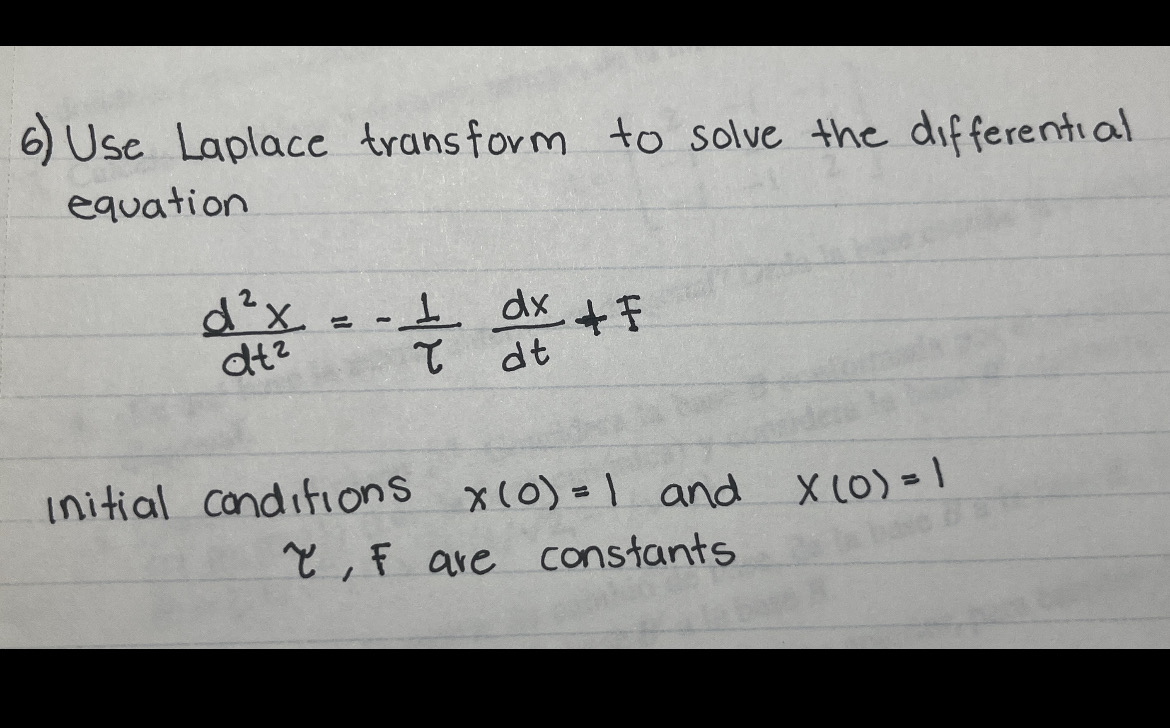 6) Use Laplace transform to solve the differential
equation
d²x/dt² = - 1/τ dx/dt + F
initial conditions x(0) = 1 and x(0) = 1
τ, F are constants